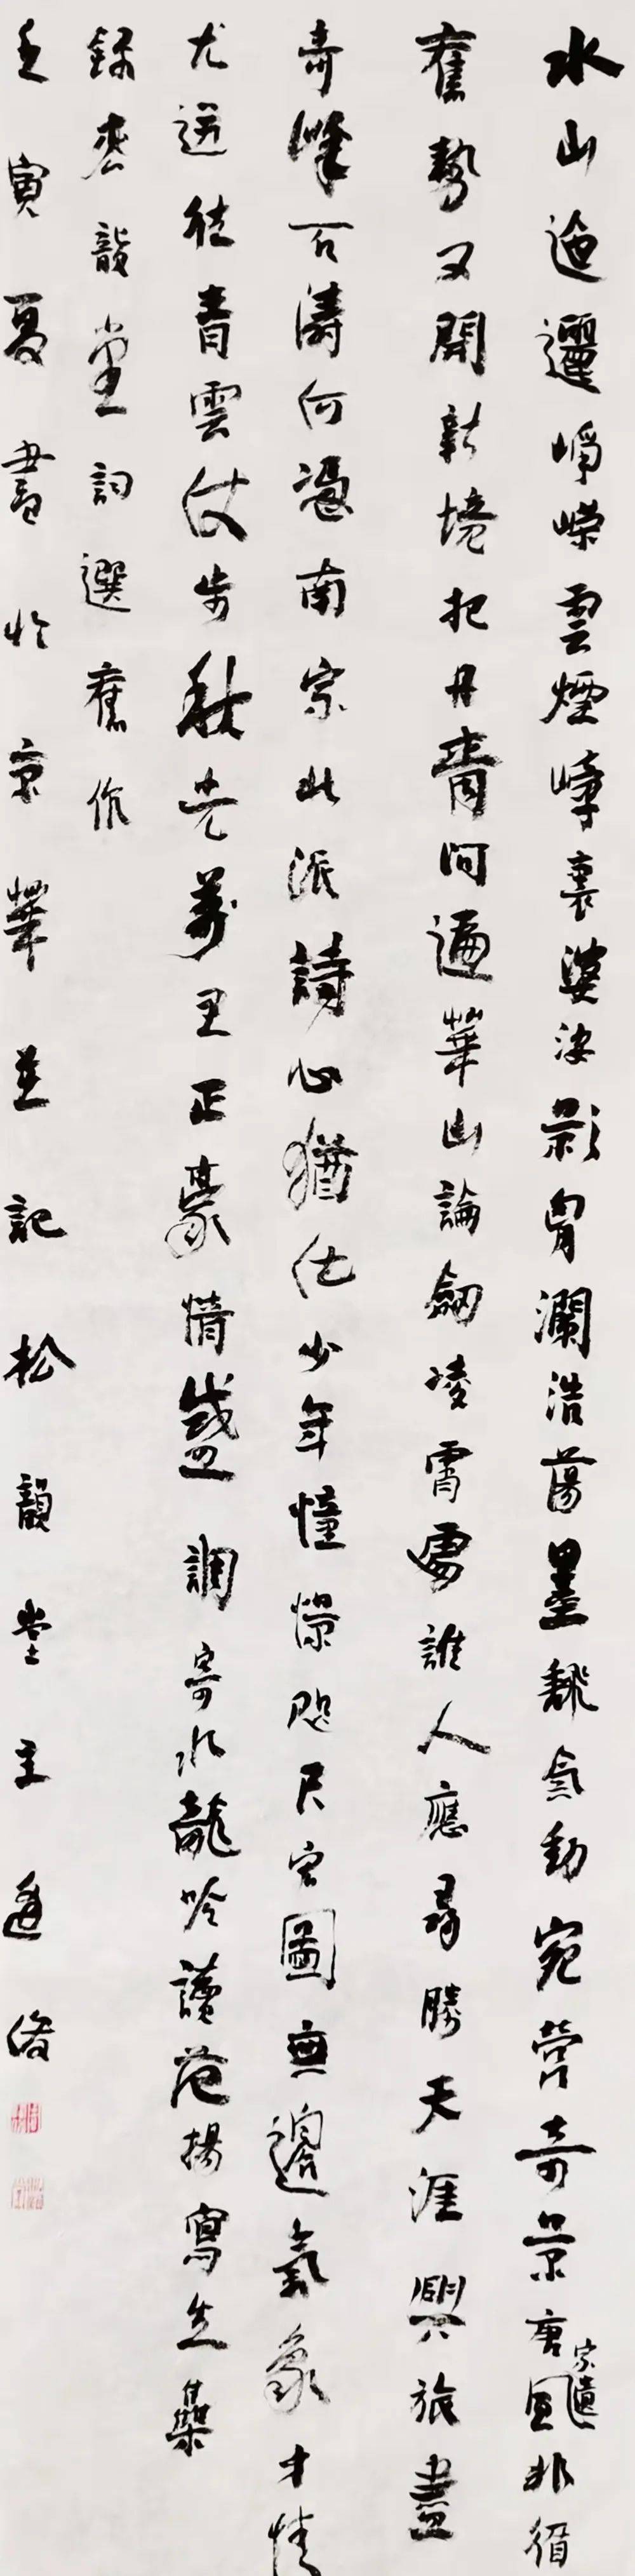 水山迤邐崢嶸雲煙嶂裏婆娑影胷瀾浩蕩墨氣動宛營奇景唐宋遺風非循
舊勢又開新境把丹青問遍華山論劍凌霄處誰人應尋勝天涯興旅盡
奇峰石濤何憑南宗北派詩心猶化少年憧憬咫尺宏圖無邊氣象才情
尤迥往青雲仗步秋光萬里正豪情盛 調寄水龍吟讀范揚寫生集
錄松韻堂詞選舊作
壬寅夏書於京華並記松韻堂主